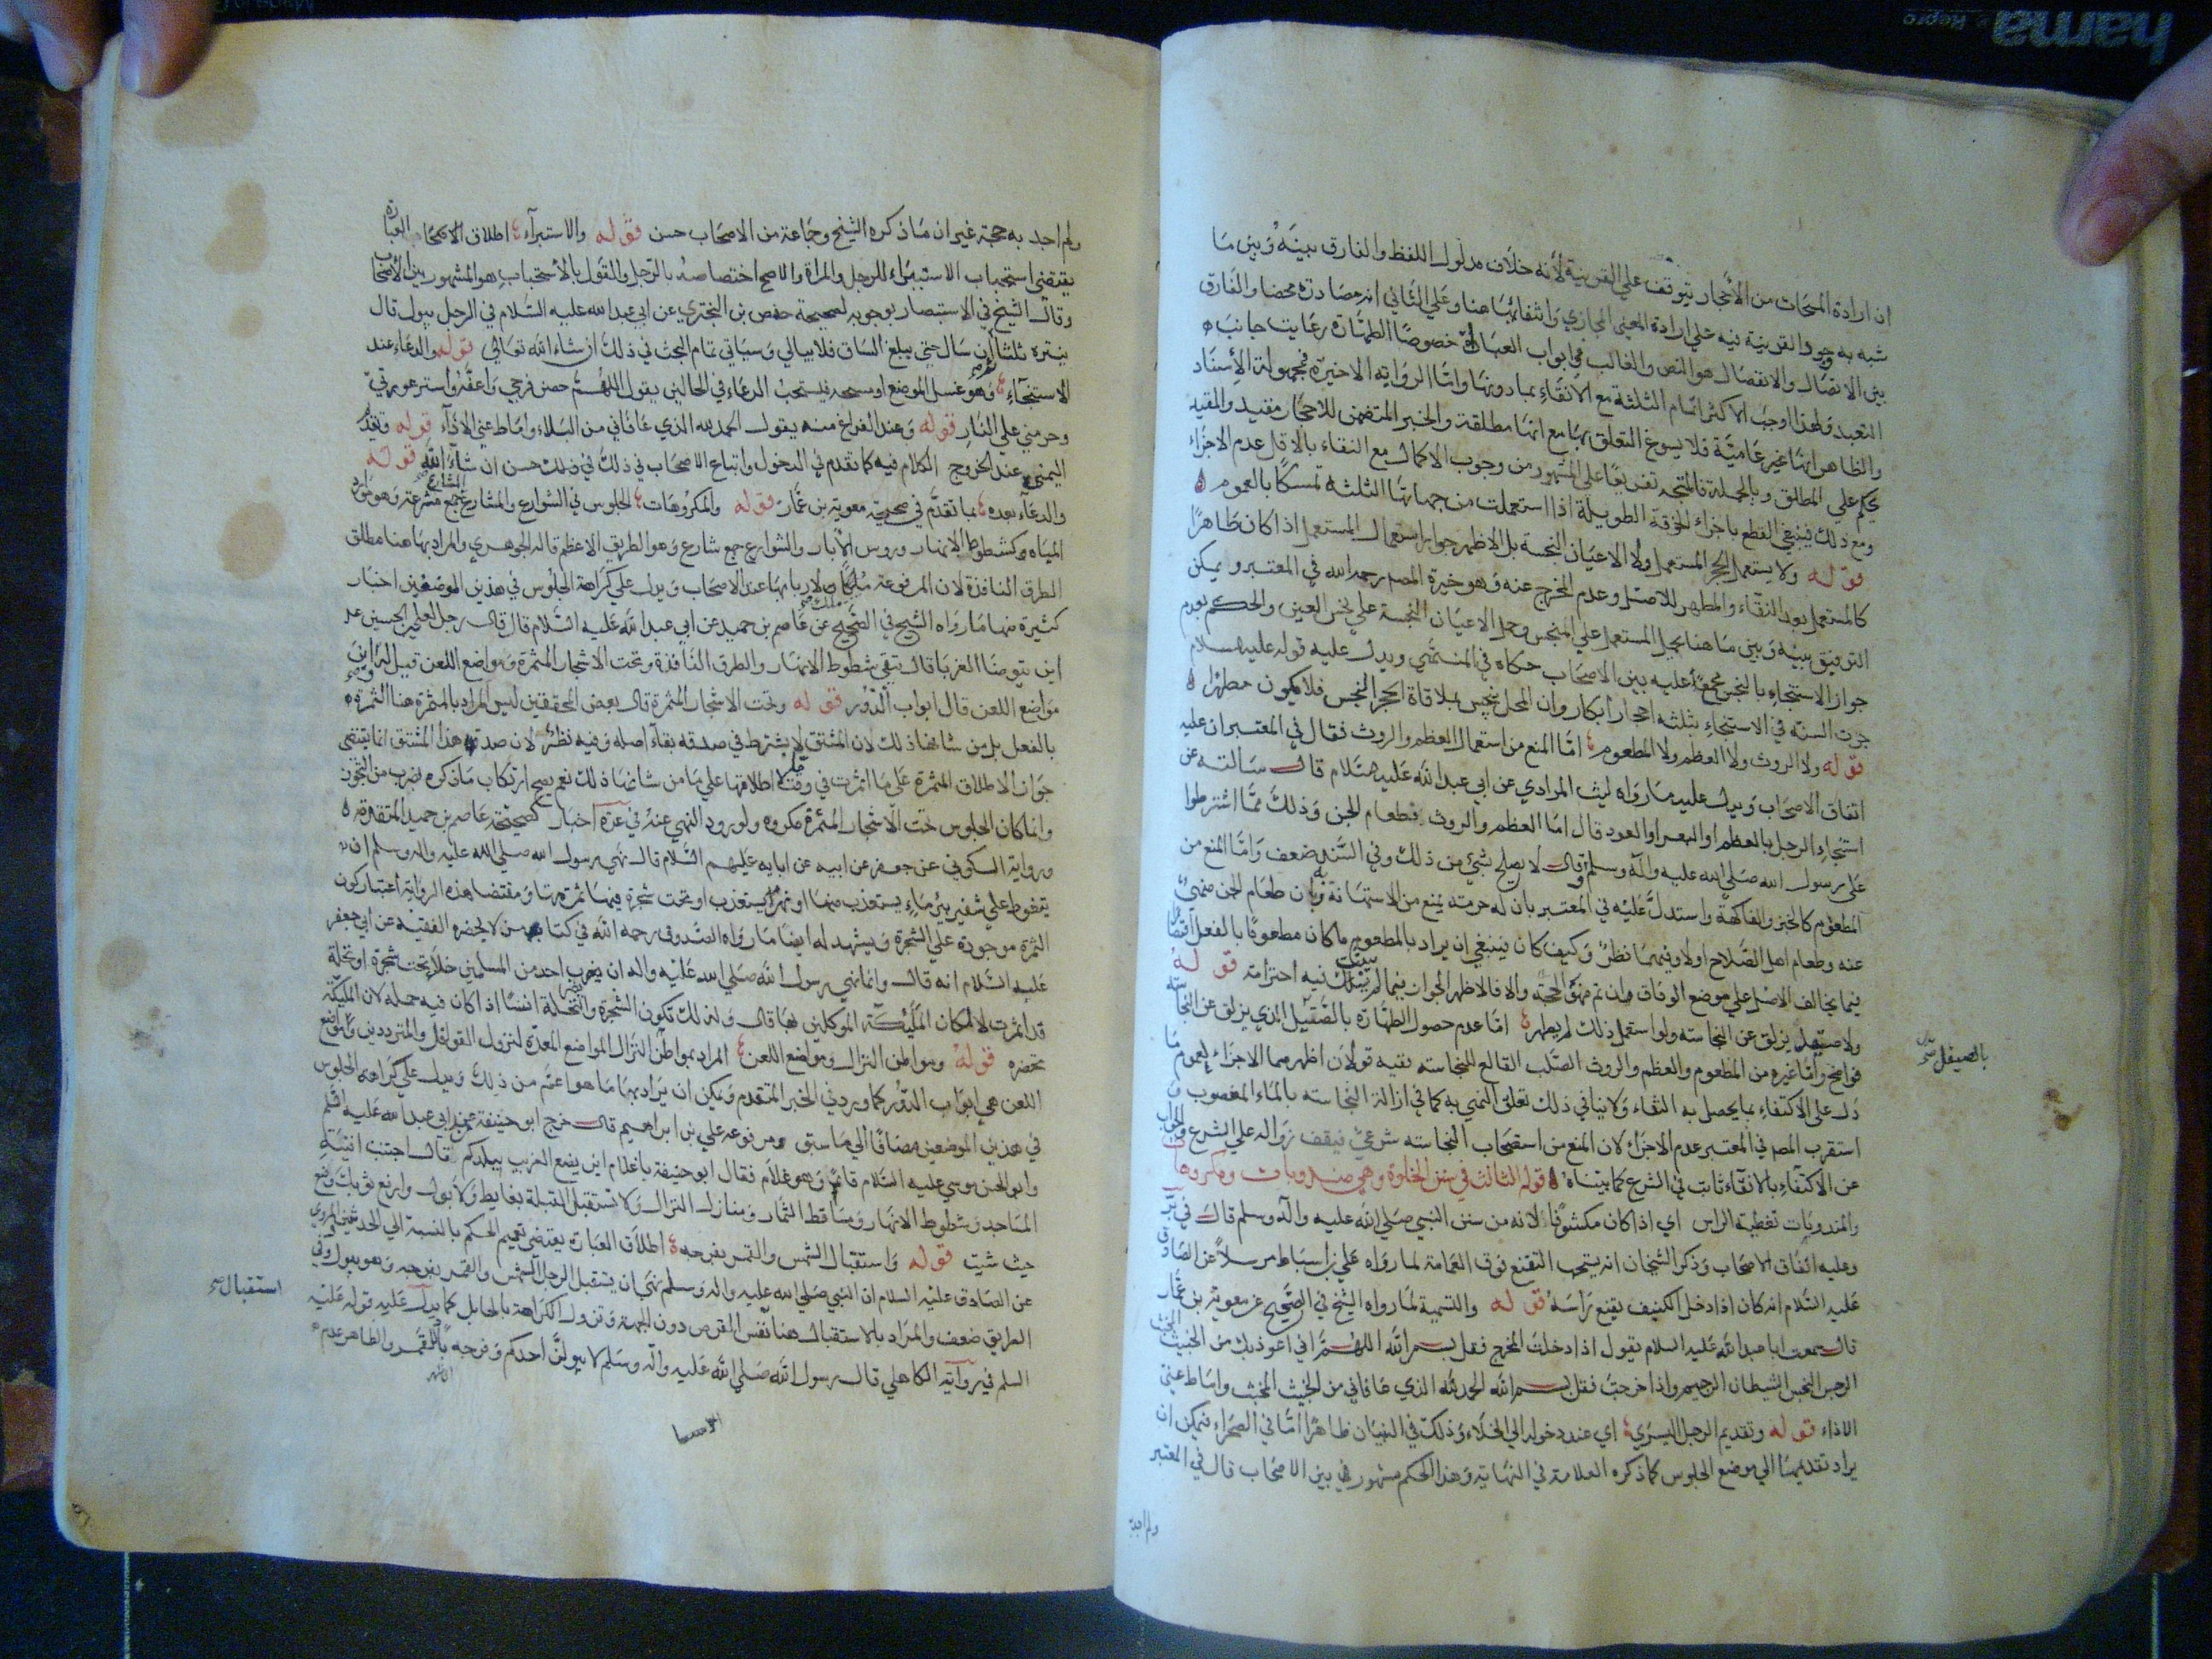 ان ارادة المسحات من الأحجار تتوقف علي القرينة لأنه خلاف مدلول اللفظ والفارق بينه وبين ما
شبه به وجود القرينة فيه علي ارادة المعني المجازي وانتفائها هنا وعلي الثاني انه مصادرة محضا والفارق
بين الاتصال والانفصال هو النص والغالب في ابواب العبادات خصوصا الطهارة رعايت جانب
التعبد ولهذا اوجب الاكثر اتمام الثلثة مع الانقاء بما دونها واما الرواية الاخيرة فمجهولة الأسناد
والظاهر انها غير عامية فلا يسوغ التعلق بها مع انها مطلقة والخبر المتضمن للاحجار مقيد والمقيد
يحكم علي المطلق وبالجملة فالمتجه تفريعا علي المشهور من وجوب الاكمال مع النقاء بالاقل عدم الاجزاء
ومع ذلك فينبغي القطع باجزاء الخرقة الطويلة اذا استعملت من جهاتها الثلثة تمسكا بالعموم
قوله ولا يستعمل الحجر المستعمل ولا الاعيان النجسة بل الاظهر جواز استعمال المستعمل اذا كان طاهرا
كالمستعمل بعد النقاء والمطهر للاصل وعدم المخرج عنه وهو خيرة المصر رحمه الله في المعتبر ويمكن
التوفيق بينه وبين ما هنا بحمل المستعمل علي المنجس وحمل الاعيان النجسة علي نجس العين والحكم بعدم
جواز الاستنجاء بالنجس مجمع عليه بين الاصحاب حكاه في المنتهي ويدل عليه قوله عليه السلام
جرت السنة في الاستنجاء بثلثة احجار ابكار وان المحل ينجس بملاقاة الحجر النجس فلا يكون مطهرا
قوله ولا الروث ولا العظم ولا المطعوم اما المنع من استعمال العظم والروث فقال في المعتبر ان عليه
اتفاق الاصحاب ويدل عليه ما رواه ليث المرادي عن ابي عبد الله عليه السلام قال سالته عن
استنجاء الرجل بالعظم او البعر او العود قال اما العظم والروث فطعام الجن وذلك مما اشترطوا
علي رسول الله صلي الله عليه وآله وسلم وقال لا يصلح بشيء من ذلك وفي السند ضعف واما المنع من
المطعوم كالخبز والفاكهة واستدل عليه في المعتبر بان له حرمة يمنع من الاستهانة به وبان طعام الجن منهي
عنه وطعام اهل الصلاح اولي وفيهما نظر وكيف كان فينبغي ان يراد بالمطعوم ما كان مطعوما بالفعل اقتصارا
فيما يخالف الاصل علي موضع الوفاق وان تم فهو الحجة والا فالاظهر الجواز فيما لم يثبت فيه احترامه قوله
ولا صيقل يزلق عن النجاسة ولو استعمل ذلك لم يطهر اما عدم حصول الطهارة بالصقيل الذي يزلق عن النجاسة
بالصيقل
فواضح واما غيره من المطعوم والعظم والروث الصلب القالع للنجاسة ففيه قولان اظهرهما الاجزاء لعموم ما
دل علي الاكتفاء بما يحصل به النقاء ولا ينافي ذلك تعلق النهي به كما في ازالة النجاسة بالماء المغصوب و
استقرب المصر في المعتبر عدم الاجزاء لان المنع من استصحاب النجاسة شرعي فيقف زواله علي الشرع والجواب
عن الاكتفاء بالانقاء ثابت في الشرع كما بيناه قوله الثالث في سنن الخلوة وهي مندوبات ومكروهات
والمندوبات تغطية الراس اي اذا كان مكشوفا لانه من سنن النبي صلي الله عليه وآله وسلم قال في
وعليه اتفاق الاصحاب وذكر الشيخان انه يستحب التقنع فوق العمامة لما رواه علي بن اسباط مرسلا عن الصادق
عليه السلام انه كان اذا دخل الكنيف يقنع راسه قوله والتسمية لما رواه الشيخ في الصحيح عن معوية بن عمار
قال سمعت ابا عبد الله عليه السلام يقول اذا دخلت المخرج فقل بسم الله اللهم اني اعوذ بك من الخبيث المخبث
الرجس النجس الشيطان الرجيم واذا خرجت فقل بسم الله الحمد لله الذي عافاني من الخبيث المخبث واماط عني
الاذاء قوله وتقديم الرجل اليسري اي عند دخوله الي الخلاء وذلك في البنيان ظاهر اما في الصحراء فيمكن ان
يراد تقديمها الي موضع الجلوس كما ذكره العلامة في النهاية وهذا الحكم مشهور في بين الاصحاب قال في المعتبر
ولم اجد
ولم اجد به حجة غير ان ما ذكره الشيخ وجماعة من الاصحاب حسن قوله والاستبراء اطلاق العبارة
يقتضي استحباب الاستبراء للرجل والمراة والاصح اختصاصه بالرجل والقول بالاستحباب هو المشهور بين الاصحاب
وقال الشيخ في الاستبصار بوجوبه لصحيحة حفص بن البختري عن ابي عبد الله عليه السلام في الرجل يبول قال
ينتره ثلثا ثم ان سال حتي يبلغ الساق فلا يبالي وسياتي تمام البحث في ذلك ان شاء الله تعالي قوله والدعاء عند
الاستنجاء وهو غسل الموضع او مسحه فيستحب الدعاء في الحالين يقول اللهم حصن فرجي واعفه واستر عورتي
وحرمني علي النار قوله وعند الفراغ منه يقول الحمد لله الذي عافاني من البلاء واماط عني الاذاء قوله وتقديم
اليمني عند الخروج الكلام فيه كما تقدم في الدخول واتباع الاصحاب في ذلك حسن ان شاء الله قوله
والدعاء بعده بما تقدم في صحيحة معوية بن عمار قوله والمكروهات الجلوس في الشوارع والمشارع جمع مشرعة وهو موارد
المياه وكشطوط الانهار وروس الآبار والشوارع جمع شارع وهو الطريق الاعظم قاله الجوهري والمراد بها هنا مطلق
الطرق النافذة لان المرفوعة ملك لاربابها عند الاصحاب ويدل علي كراهة الجلوس في هذين الموضعين اخبار
كثيرة منها ما رواه الشيخ في الصحيح عن عاصم بن حميد عن ابي عبد الله عليه السلام قال قال رجل لعلي بن الحسين عليه
اين يتوضا الغربا قال يتقي شطوط الانهار والطرق النافذة وتحت الاشجار المثمرة ومواضع اللعن قيل له واين
مواضع اللعن قال ابواب الدور قوله وتحت الاشجار المثمرة قال بعض المحققين ليس المراد بالمثمرة هنا الثمرة
بالفعل بل من شانها ذلك لان المشتق لا يشترط في صدقه بقاء اصله وفيه نظر لان صدق هذا المشتق انما يقتضي
جواز الاطلاق المثمرة علي ما اثمرت في وقت ما لا اطلاقها علي ما من شانها ذلك نعم يصح ارتكاب ما ذكره بضرب من التجوز
وانما كان الجلوس تحت الاشجار المثمرة مكروه ولورود النهي عنه في عدة اخبار كصحيحة عاصم بن حميد المتقدمة
ورواية السكوني عن جعفر عن ابيه عن ابايه عليهم السلام قال نهي رسول الله صلي الله عليه واله وسلم ان
يتغوط علي شفير بئر ماء يستعذب منها او نهر يستعذب او تحت شجرة فيها ثمرتها ومقتضا هذه الرواية اعتبار كون
الثمرة موجودة علي الشجرة ويشهد له ايضا ما رواه الصدوق رحمه الله في كتاب من لا يحضره الفقيه عن ابي جعفر
عليه السلام انه قال وانما نهي رسول الله صلي الله عليه واله ان يضرب احد من المسلمين خلاء تحت شجرة او نخلة
قد اثمرت لمكان الملئكة الموكلين بها قال ولذلك تكون الشجرة والنخلة انسا اذا كان فيه حمله لان الملئكة
تحضره قوله ومواطن النزال ومواضع اللعن المراد بمواطن النزال المواضع المعدة لنزول القوافل والمترددين ومواضع
اللعن هي ابواب الدور كما ورد في الخبر المتقدم ويمكن ان يراد بها ما هو اعم من ذلك ويدل علي كراهة الجلوس
في هذين الموضعين مضافا الي ما سبق مرفوعة علي بن ابراهيم قال خرج ابو حنيفة من عند ابي عبد الله عليه السلم
وابو الحسن موسي عليه السلام قائم وهو غلام فقال ابو حنيفة يا غلام اين يضع الغريب ببلدكم قال اجتنب افنية
المساجد وشطوط الانهار ومساقط الثمار ومنازل النزال ولا تستقبل القبلة بغايط ولا بول وارفع ثوبك وضع
حيث شئت قوله واستقبال الشمس والقمر بفرجه اطلاق العبارة يقتضي تعميم الحكم بالنسبة الي الحدثين المروي
عن الصادق عليه السلام ان النبي صلي الله عليه واله وسلم نهي ان يستقبل الرجل الشمس والقمر بفرجه وهو يبول وفي
استقبال
الطريق ضعف والمراد بالاستقبال هنا نفس القرص دون الجهة وتزول الكراهة بالحايل كما يدل عليه قوله عليه
السلم في رواية الكاهلي قال رسول الله صلي الله عليه واله وسلم لا يبولن احدكم وفرجه باد للقمر والظاهر عدم